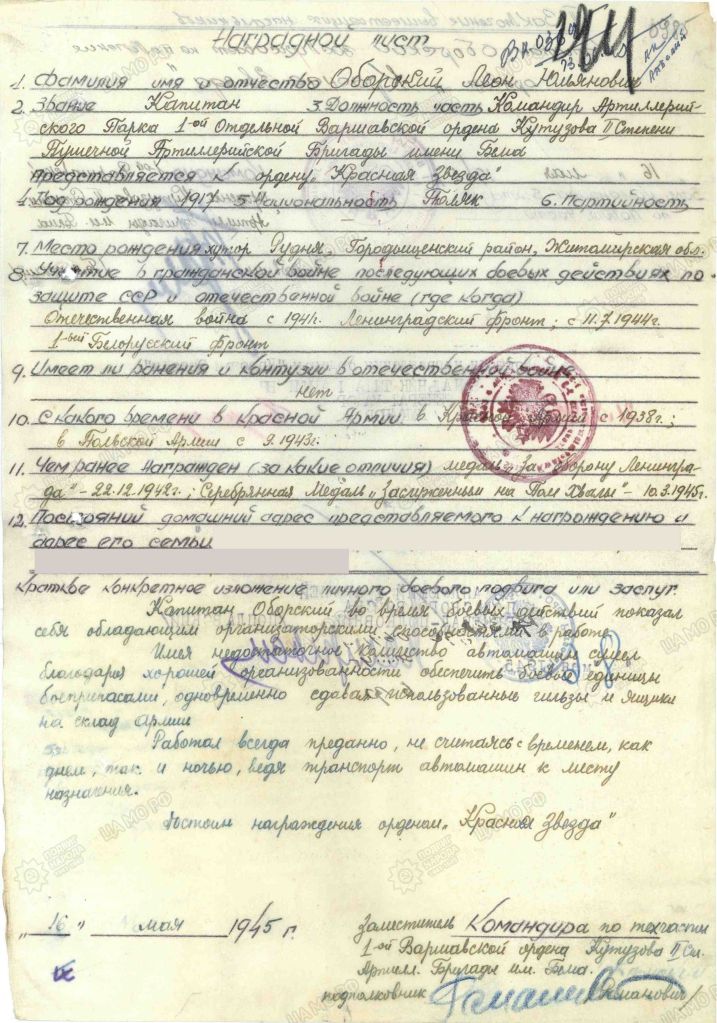 Наградной лист
1. Фамилия имя и отчество Оборский Леон Юльянович
2. Звание Капитан 3. Должность часть Командир Артиллерий-
ского Парка 1-ой Отдельной Варшавской ордена Кутузова II Степени
Пушечной Артиллерийской Бригады имени Бема
Представляется к ордену „Красная Звезда"
4. Год рождения 1917 5. Национальность Поляк 6. Партийность
7. Место рождения хутор Рудня, Городыщенский район, Житомирская обл.
8. Участие в гражданской войне последующих боевых действиях по
защите СССР и отечественной войне (где когда)
Отечественная война с 1941г. Ленинградский фронт; с 11.7.1944г.
1-ый Белорусский фронт
9. Имеет ли ранения и контузии в отечественной войне
нет
10. С какого времени в красной Армии в Красной Армии с 1938г.;
в Польской Армии с 9.1943г.
11. Чем ранее награжден (за какие отличия) медаль „За оборону Ленингра-
да" - 22.12.1942г.; Серебрянная Медаль „Заслуженным на Поле Хвалы" - 10.3.1945г.
12. Постояний домашний адрес представляемого к награждению и
адрес его семьи
Краткое конкретное изложение личного боевого подвига или заслуг.
Капитан Оборский во время боевых действий показал
себя обладающим организаторскими способностями в работе.
Имея недостаточное количество автомашин сумел
благодаря хорошей организованности обеспечить боевые единицы
боеприпасами, одновременно сдавая использованные гильзы и ящики
на склад Армии
Работал всегда преданно, не считаясь с временем, как
днем, так и ночью, ведя транспорт автомашин к месту
назначения.
Достоин награждения орденом „Красная Звезда"
„16" мая 1945 г.
Заместитель Командира по техчасти
1-ой Варшавской ордена Кутузова II Ст.
Артилл. Бригады им. Бема.
подполковник
ЦАМО РФ